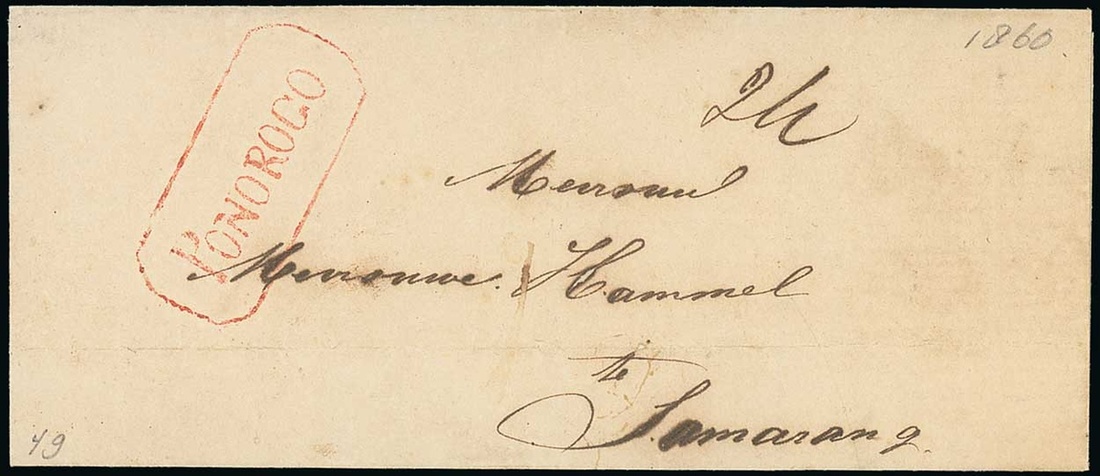 1860
PONOROGO
Mevrouw
Mevrouwe Hammel
te
Samarang
49